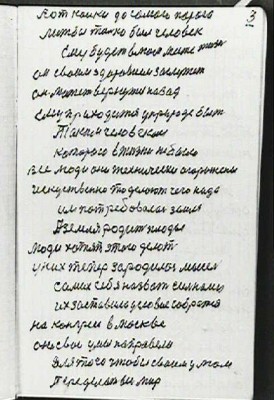 3
Вот каким до самого порога
Жить бы только был человек
Ему будет в моей жизни
он своим здоровьем заслужит
он может вернуться назад
Ему приходится у природе быть
Таким человеком
которого в жизни небыло
Все люди они технически вооружены
искуственно поделают чего надо
им потребовалась земля
Аземля родит плоды
люди хотят этого делают
у них теперь зародилась мысль
самих себя назвать сильными
их заставило условие собратся
на конгрес в Москве
они свои умы направели
для того чтобы своим умом
Переделать весь мир